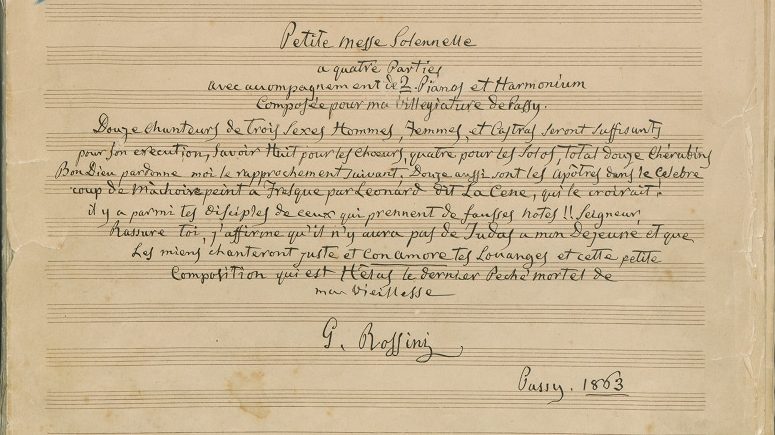 Petite Messe Solennelle
a quatre Parties
avec accompagnement de 2 Pianos et Harmonium
Composée pour ma villegiature de Passy.
Douze Chanteurs de trois Sexes Hommes, Femmes, et Castras seront suffisants
pour son execution, Savoir Huit pour les Choeurs, quatre pour les Solos, total douze Chérubins
Bon Dieu pardonne moi le rapprochement suivant. Douze aussi sont les Apôtres dans le célebre
coup de Machoire peint a Fresque par Léonard dit La Cene, qui le croirait!
il y a parmi tes Disciples de ceux qui prennent de fausses notes!! Seigneur,
Rassure toi, j'affirme qu'il n'y aura pas de Judas a mon Dejeuné et que
Les miens chanteront juste et Con amore tes Louanges et cette petite
Composition qui est Hélas le dernier Peché mortel de
ma vieillesse
G. Rossini
Passy. 1863